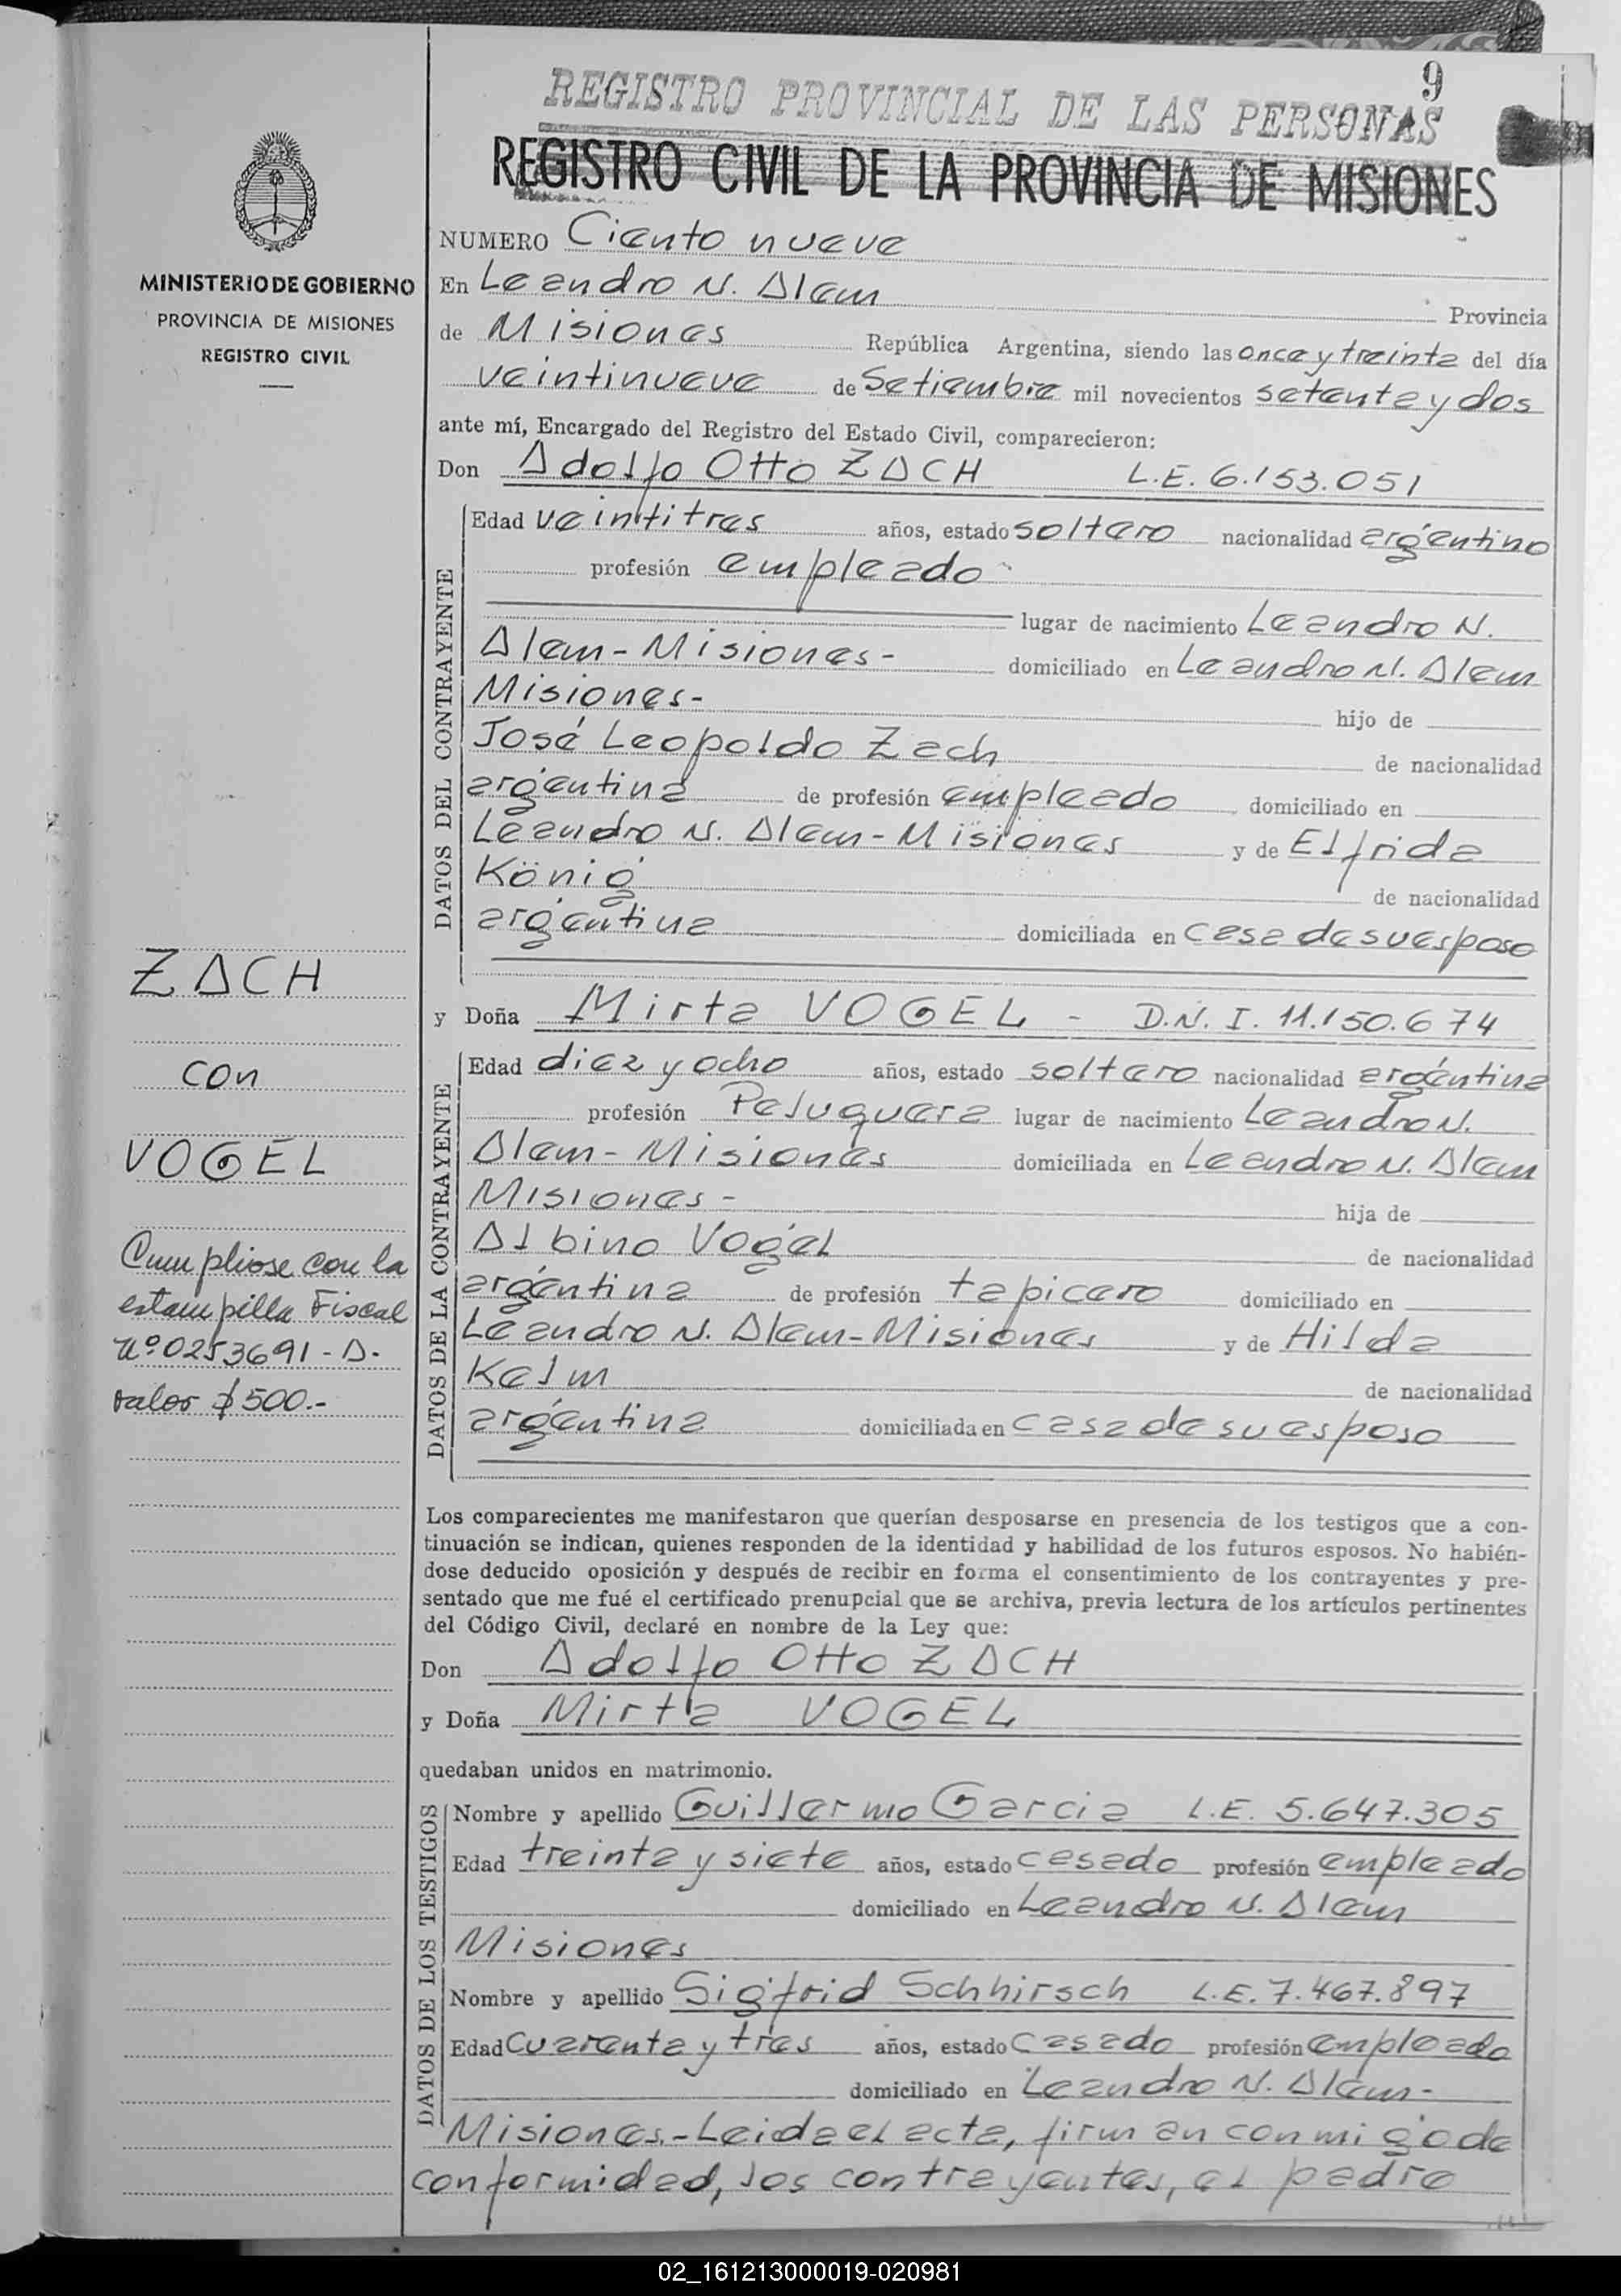 9
REGISTRO PROVINCIAL DE LAS PERSONAS
REGISTRO CIVIL DE LA PROVINCIA DE MISIONES
MINISTERIO DE GOBIERNO
PROVINCIA DE MISIONES
REGISTRO CIVIL
NUMERO Ciento nueve
En Leandro N. Alem Provincia
de Misiones República Argentina, siendo las once y treinta del día
veintinueve de Setiembre mil novecientos setenta y dos
ante mí, Encargado del Registro del Estado Civil, comparecieron:
Don Adolfo Otto ZACH L.E. 6.153.051
DATOS DEL CONTRAYENTE
Edad veintitres años, estado soltero nacionalidad argentino
profesión empleado
lugar de nacimiento Leandro N.
Alem - Misiones - domiciliado en Leandro N. Alem
Misiones - hijo de
José Leopoldo Zach de nacionalidad
argentina de profesión empleado domiciliado en
Leandro N. Alem - Misiones y de Elfrida
König de nacionalidad
argentina domiciliada en casa de su esposo
y Doña Mirta VOGEL - D.N.I. 11.150.674
DATOS DE LA CONTRAYENTE
Edad diez y ocho años, estado soltero nacionalidad argentina
profesión Peluquera lugar de nacimiento Leandro N.
Alem - Misiones domiciliada en Leandro N. Alem
Misiones - hija de
Albino Vogel de nacionalidad
argentina de profesión tapicero domiciliado en
Leandro N. Alem - Misiones y de Hilda
Kelm de nacionalidad
argentina domiciliada en casa de su esposo
ZACH
con
VOGEL
Cumpliose con la
estampilla Fiscal
nº 0253691 - A.
valor $ 500.-
Los comparecientes me manifestaron que querían desposarse en presencia de los testigos que a con-
tinuación se indican, quienes responden de la identidad y habilidad de los futuros esposos. No habién-
dose deducido oposición y después de recibir en forma el consentimiento de los contrayentes y pre-
sentado que me fué el certificado prenupcial que se archiva, previa lectura de los artículos pertinentes
del Código Civil, declaré en nombre de la Ley que:
Don Adolfo Otto ZACH
y Doña Mirta VOGEL
quedaban unidos en matrimonio.
DATOS DE LOS TESTIGOS
Nombre y apellido Guillermo Garcia L.E. 5.647.305
Edad treinta y siete años, estado casado profesión empleado
domiciliado en Leandro N. Alem
Misiones
Nombre y apellido Sigifrid Schhirsch L.E. 7.467.897
Edad cuarenta y tres años, estado casado profesión empleado
domiciliado en Leandro N. Alem -
Misiones. - Leida el acta, firman conmigo de
conformidad, los contrayentes, el padre
02_161213000019-020981